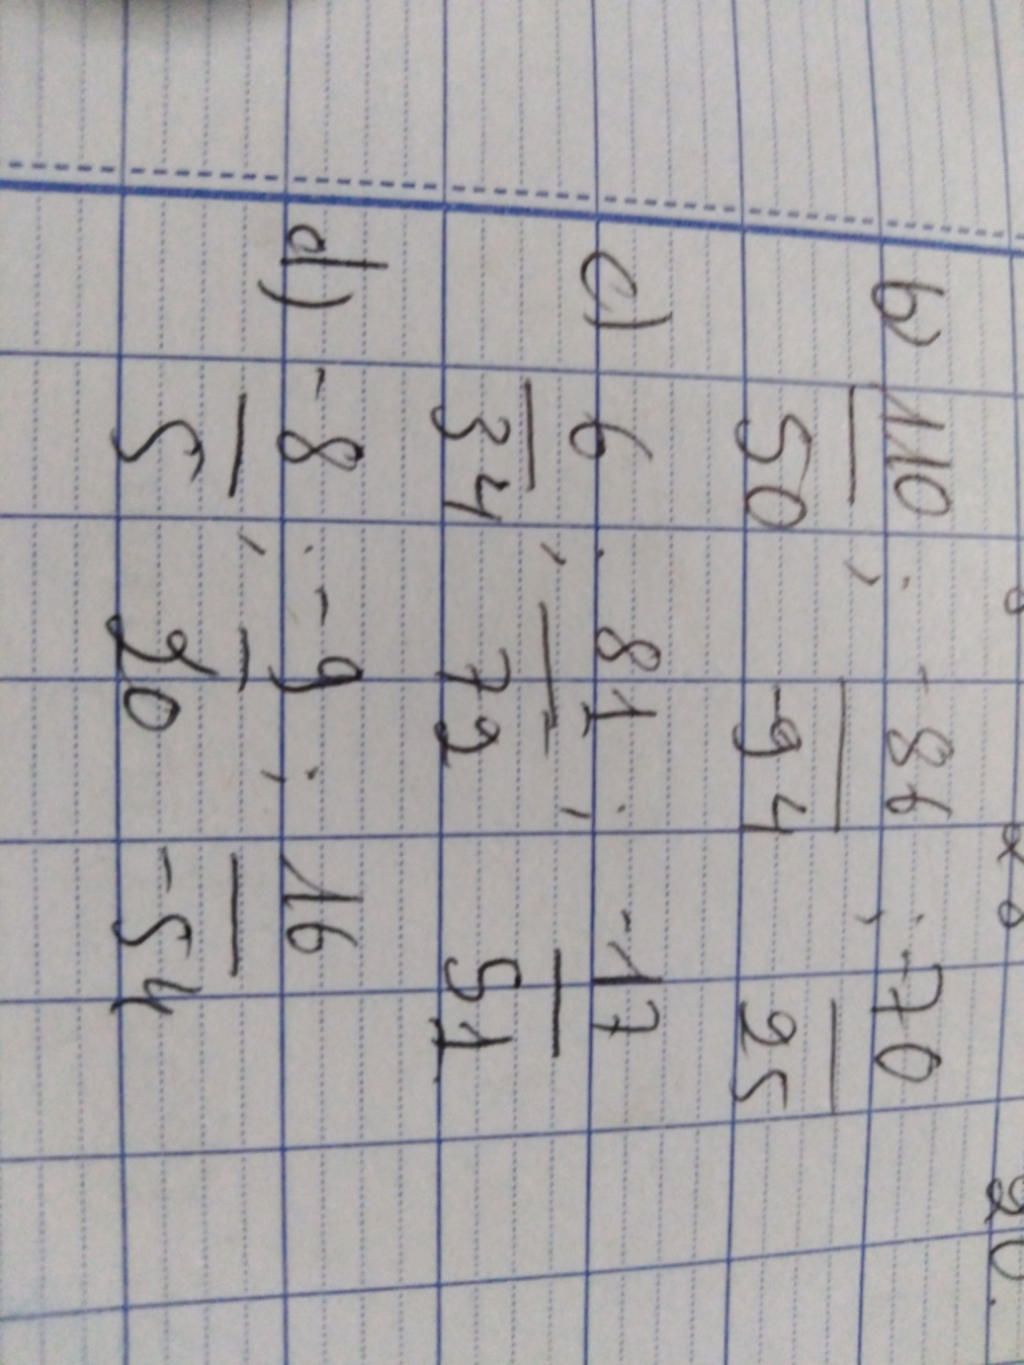 b) 110/50 ; -86/-94 ; -70/25
c) 6/34 ; 81/72 ; -17/51
d) -8/5 ; -9/20 ; 16/-54